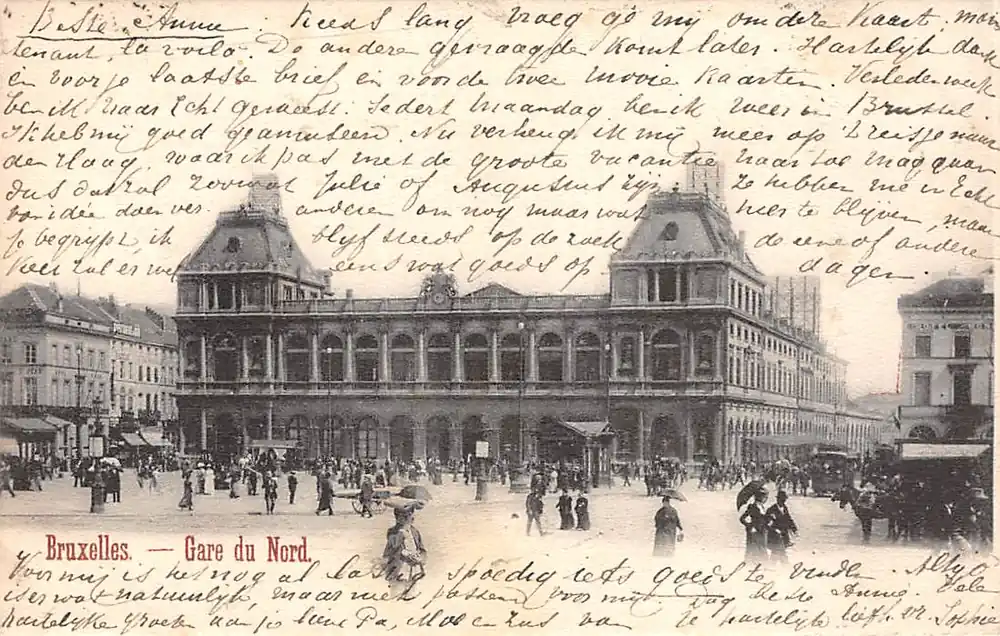 Beste Anne. Reeds lang vroeg ge my om deze Kaart. Main
tenant, la voilà. De andere gevraagde komt later. Hartelijk dank
en voor je laatste brief en voor de twee mooie Kaarten. Verleden week
ben ik naar Echt geweest. Sedert Maandag ben ik weer in Brussel.
Ik heb mij goed geamuseerd. Nu verheug ik mij weer op 't reisje naar
den Haag, waar ik pas met de groote vacantie naar toe mag gaan
dus dat zal zoowat Julie of Augustus zijn. Ze hebben me in Echt
van idée doen ver anderen om nog maar wat hier te blijven, maar
je begrijpt, ik blijf steeds op de zoek de een of andere
Keer zal er we eens wat goeds op dagen
HOTEL
Bruxelles. — Gare du Nord.
Voor mij is het nog al lastig spoedig iets goeds te vinden. Altijd
is er wat natuurlijk, maar niet passen voor mij. Dag beste Anne. Vele
hartelijke groeten aan je lieve Pa, Moe en Zus van je hartelijk liefh. vr. Sophie